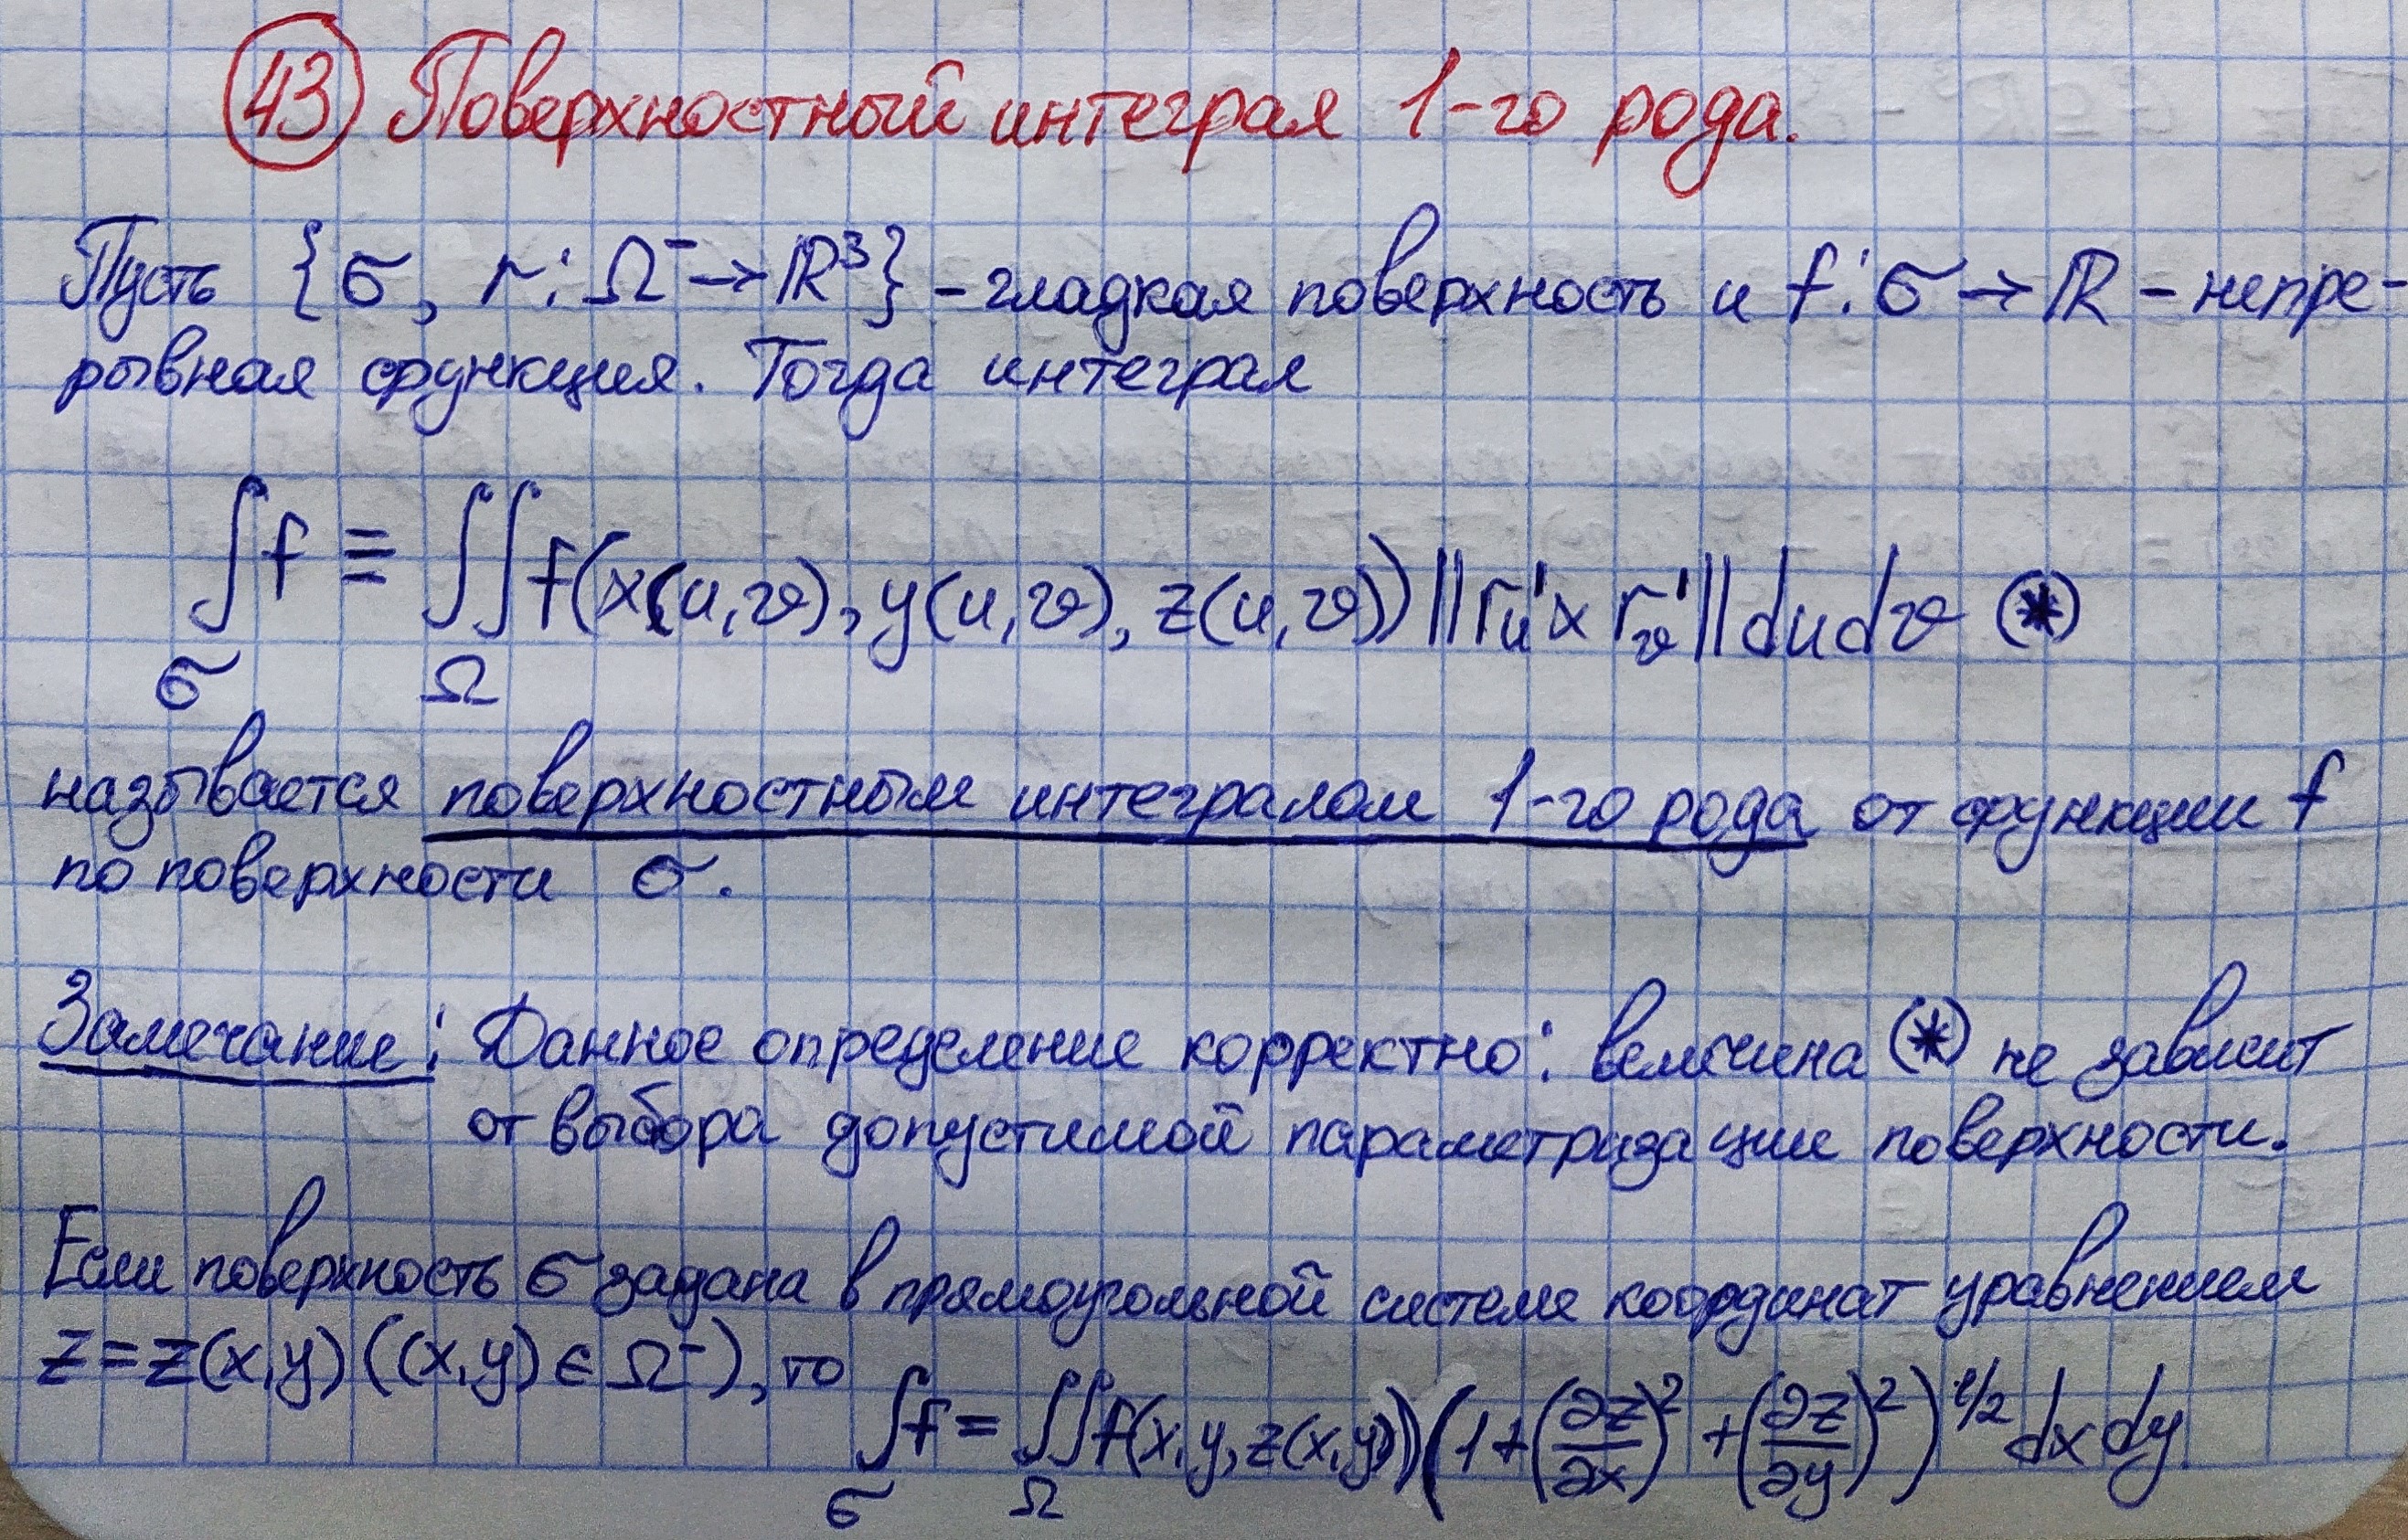 43 Поверхностный интеграл 1-го рода.
Пусть {σ, r: Ω⁻→ℝ³} – гладкая поверхность и f: σ→ℝ – непре-
рывная функция. Тогда интеграл
∫_σ f ≡ ∬_Ω f(x(u,v), y(u,v), z(u,v)) ||r'_u × r'_v|| du dv (*)
называется поверхностным интегралом 1-го рода от функции f
по поверхности σ.
Замечание: Данное определение корректно: величина (*) не зависит
от выбора допустимой параметризации поверхности.
Если поверхность σ задана в прямоугольной системе координат уравнением
z=z(x,y) ((x,y)∈Ω⁻), то
∫_σ f = ∬_Ω f(x,y,z(x,y)) (1+(∂z/∂x)²+(∂z/∂y)²)^{1/2} dx dy